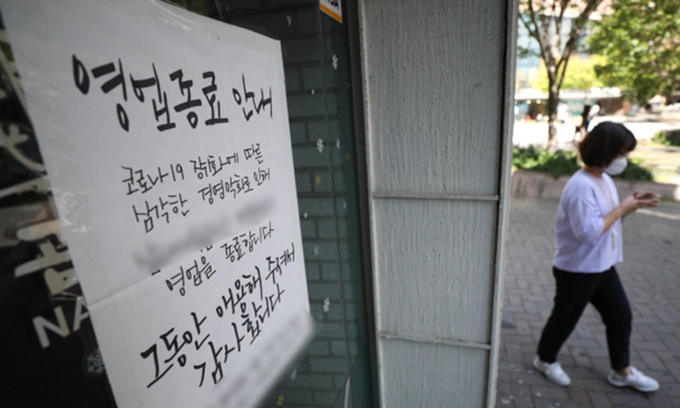 영업종료 안내
코로나19 장기화에 따른
심각한 경영악화로 인해
영업을 종료합니다
그동안 애용해 주셔서
감사합니다
NA